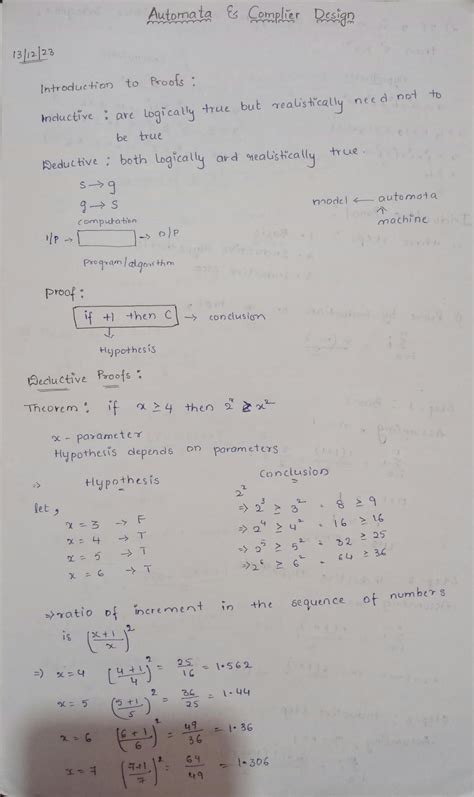 Automata & Complier Design
13/12/23
Introduction to Proofs :
Inductive : are logically true but realistically need not to
be true
Deductive : both logically and realistically true.
s → g
g → s
model ← automata
↑
machine
computation
I/P → → O/P
Program/algorithm
Proof :
if +1 then C → conclusion
↓
Hypothesis
Deductive Proofs :
Theorem : if x ≥ 4 then 2^x ≥ x²
x - parameter
Hypothesis depends on parameters
⇒ Hypothesis Conclusion
let, 2^x
x = 3 → F ⇒ 2³ ≥ 3² = 8 ≥ 9
x = 4 → T ⇒ 2⁴ ≥ 4² = 16 ≥ 16
x = 5 → T ⇒ 2⁵ ≥ 5² = 32 ≥ 25
x = 6 → T ⇒ 2⁶ ≥ 6² = 64 ≥ 36
⇒ ratio of increment in the sequence of numbers
is (x+1/x)²
⇒ x=4 (4+1/4)² = 25/16 = 1.562
x = 5 (5+1/5)² = 36/25 = 1.44
x = 6 (6+1/6)² = 49/36 = 1.36
x = 7 (7+1/7)² = 64/49 = 1.306